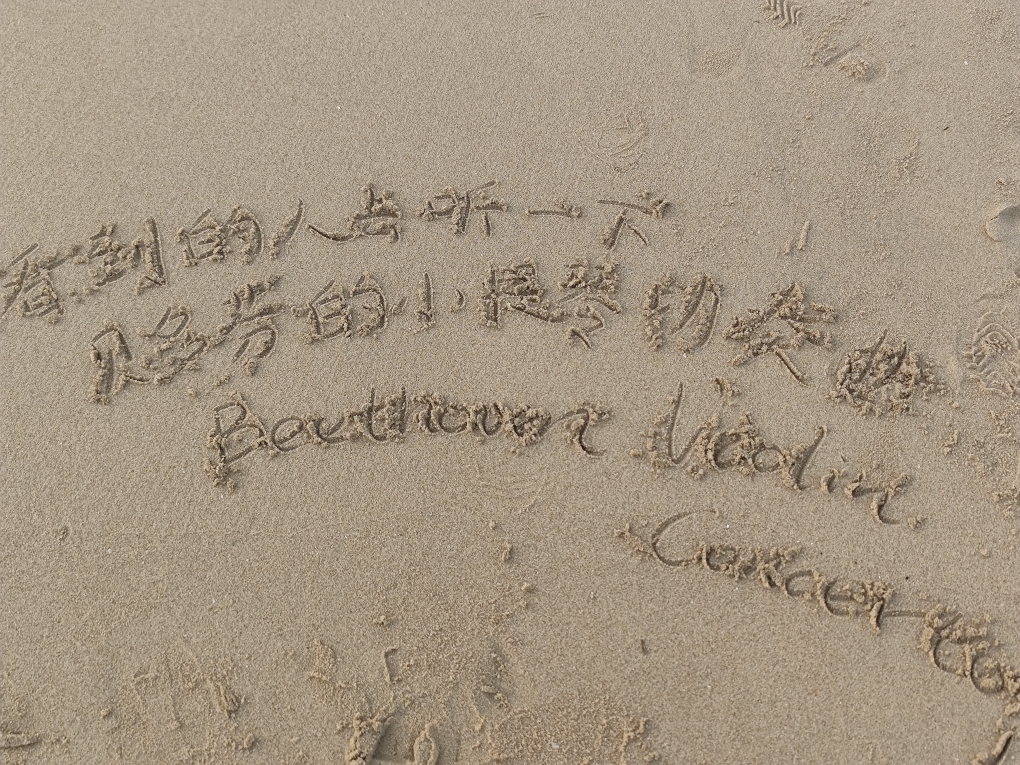 看到的人去听一下
贝多芬的小提琴协奏曲
Beethoven Violin
Concerto